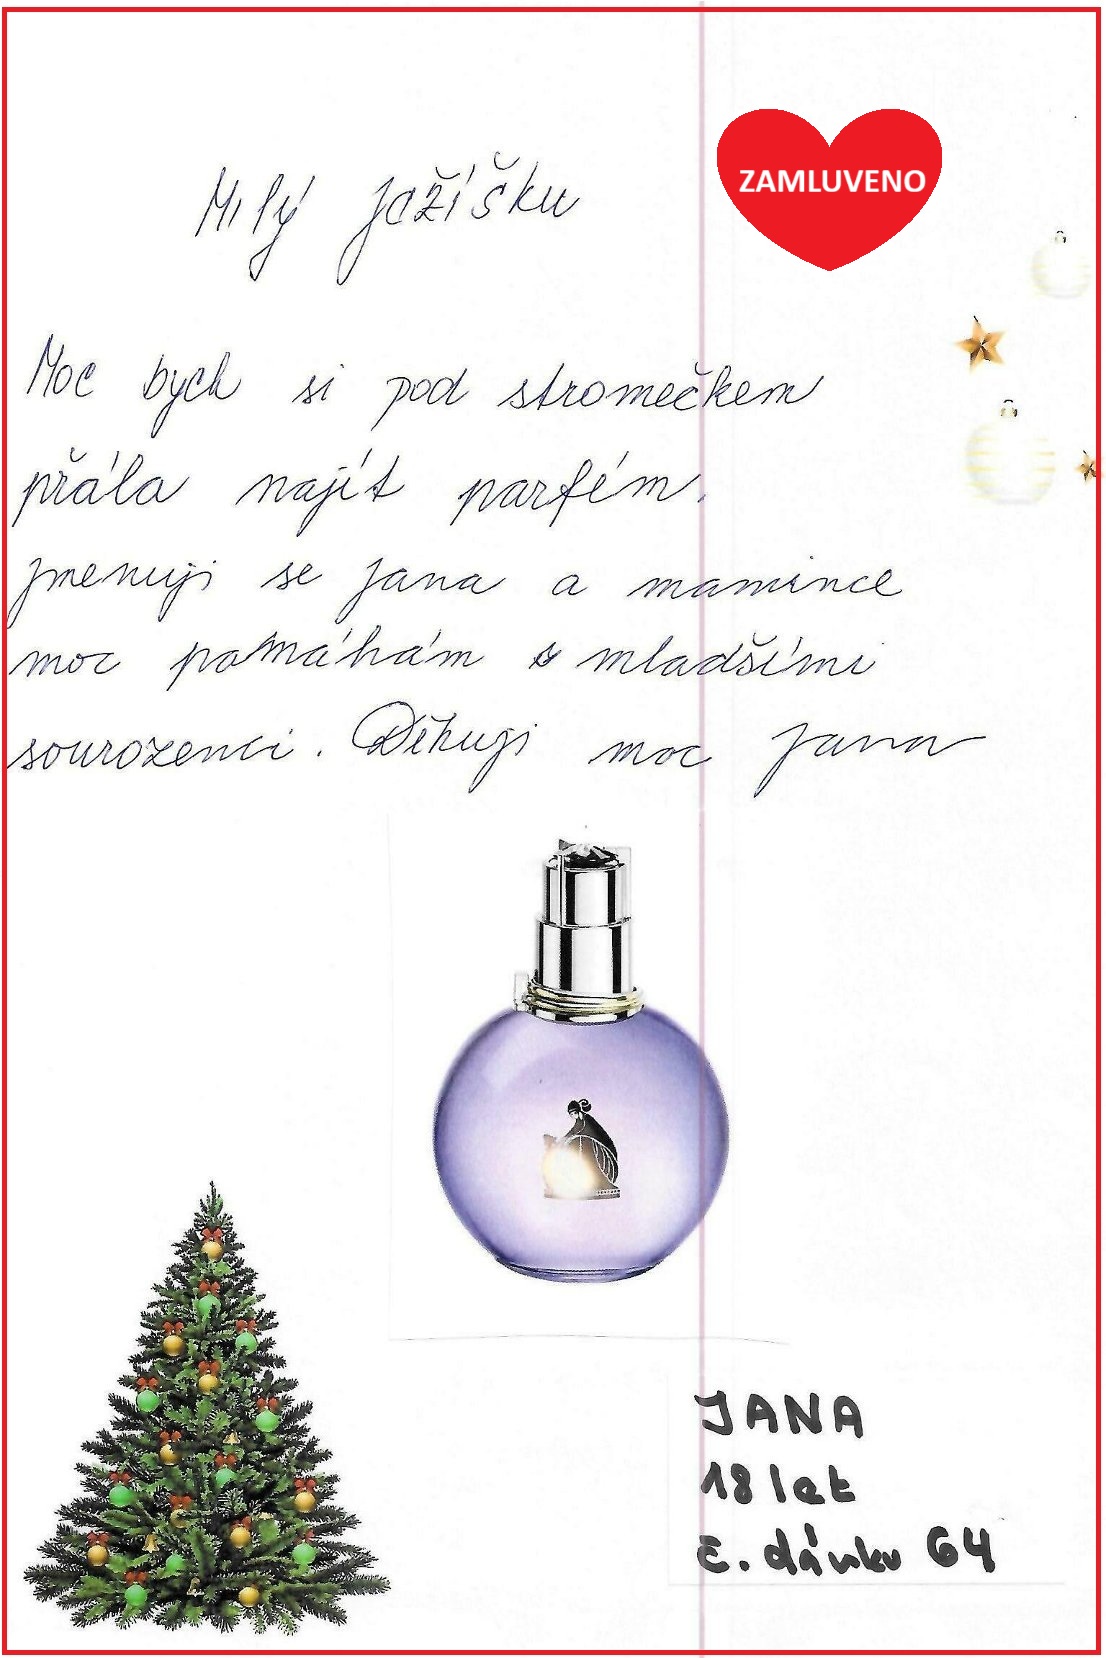 Milý ježíšku
ZAMLUVENO
Moc bych si pod stromečkem
přála najít parfém.
jmenuji se jana a mamince
moc pomáhám s mladšími
sourozenci. Děkuji moc jana
JANA
18 let
č. dárku 64